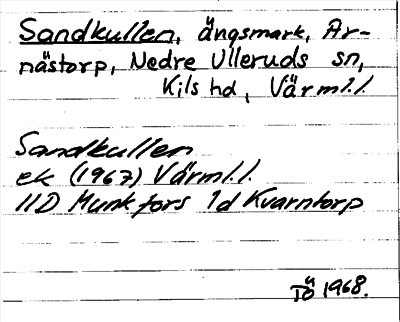 Sandkullen, ängsmark, Ar-
nästorp, Nedre Ulleruds sn,
Kils hd, Värml.l.
Sandkullen
ek (1967) Värml.l.
11D Munkfors 1d Kvarntorp
TÖ 1968.